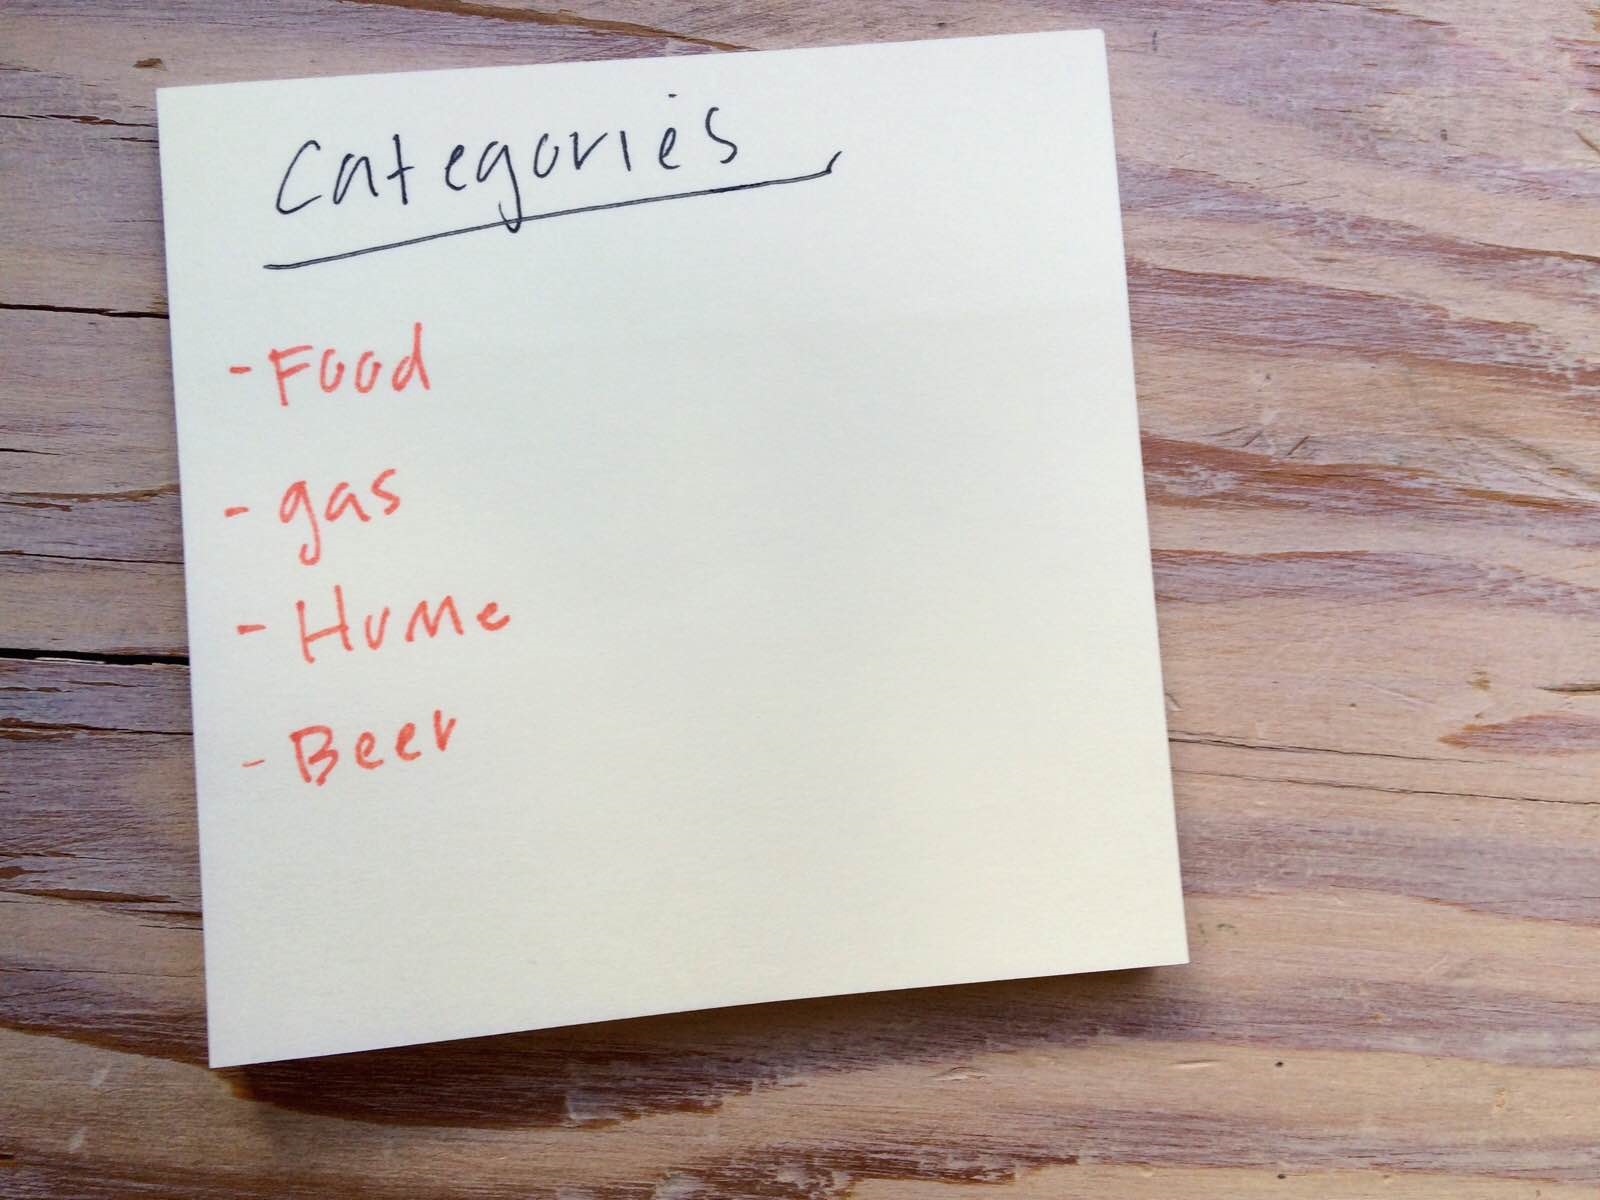 Categories
- Food
- gas
- Home
- Beer